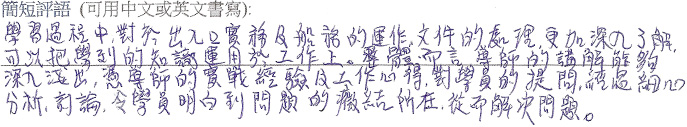 簡短評語 (可用中文或英文書寫):
學習過程中對於出入口實務及船務的運作,文件的處理,更加深入了解,
可以把學到的知識運用於工作上。整體而言,導師的講解能夠
深入淺出,憑導師的實戰經驗及工作心得,對學員的提問,經過細心
分析,討論,令學員明白到問題的癥結所在,從而解決問題。